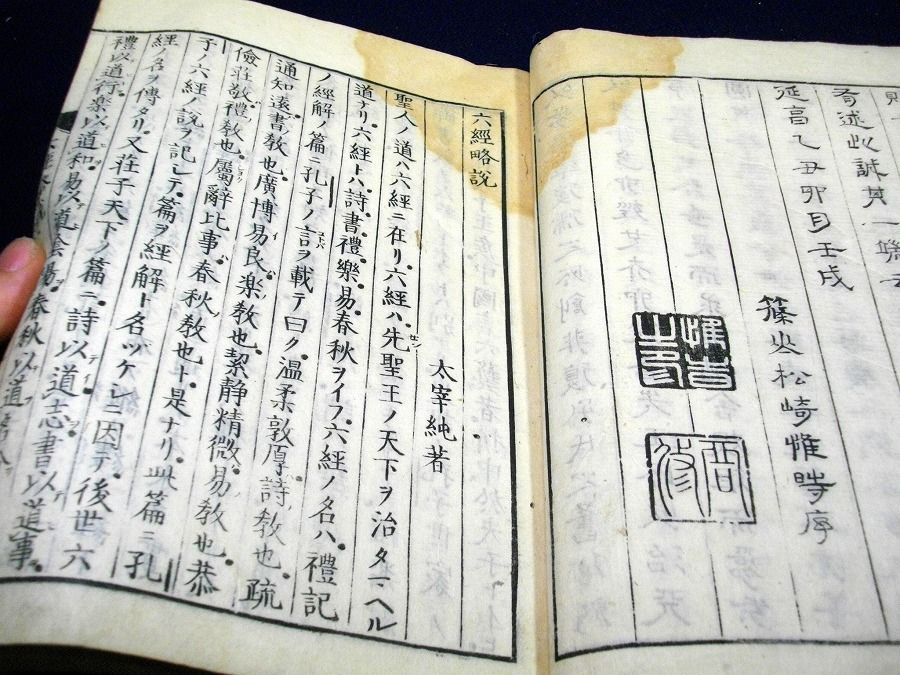 述此誠其一端
延享乙丑卯月壬戌
篠山松崎惟時序
六經略說
太宰純著
聖人ノ道ハ六經ニ在リ六經ハ先聖王ノ天下ヲ治タマヘル
道ナリ六經トハ詩書禮樂易春秋ヲイフ六經ノ名ハ禮記
ノ經解ノ篇ニ孔子ノ言ヲ載テ曰ク溫柔敦厚詩教也疏
通知遠書教也廣博易良樂教也絜靜精微易教也恭
儉莊敬禮教也屬辭比事春秋教也ト是ナリ此篇ニ孔
子ノ六經ノ說ヲ記シテ篇ヲ經解ト名ツケシニ因テ後世六
經ノ名ヲ傳タリ又莊子天下ノ篇ニ詩以道志書以道事
禮以道行樂以道和易以道陰陽春秋以道名分